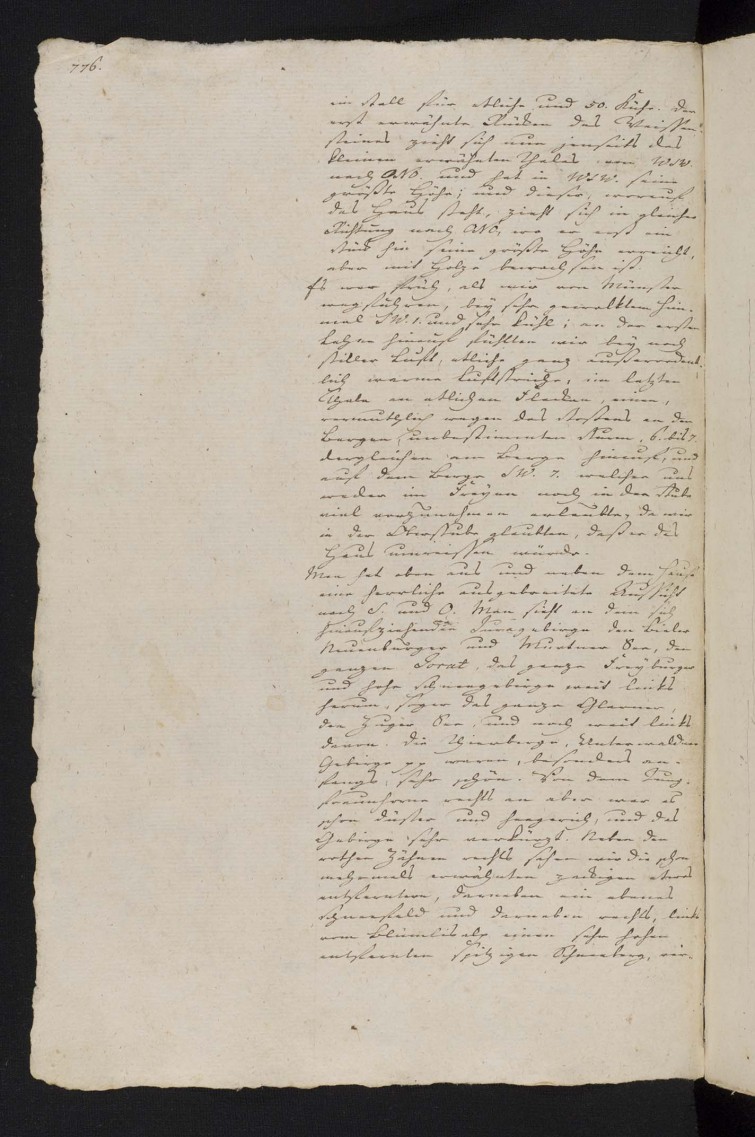 776.
ein Stall für etliche und 50. Kühe. Der
erst erwähnte Rücken des Weissen-
steines zieht sich nun jenseits des
kleinen erwähnten Thales von WSW.
nach ONO. und hat in WSW. seine
größte Höhe; und dieser, worauf
das Haus steht, zieht sich in gleicher
Richtung nach ONO, wo er erst ein
Stück hin seine größte Höhe erreicht,
aber mit Holze bewachsen ist.
Es war früh, als wir von Münster
wegfuhren, bey sehr gewölktem Him-
mel SW. 1. und sehr kühl; an der ersten
hinauf fühlten wir bey noch
stiller Luft, etliche ganz außerordent-
lich warme Luftstriche, im letzten
Thale an etlichen Flecken, einen,
vermuthlich wegen des Stoßens an den
Bergen, unbestimmten Sturm, 6. bis 7.
dergleichen am Berge hinauf, und
auf dem Berge SW. 7. welcher uns
weder im Freyen noch in der Stube
viel vorzunehmen erlaubte, da wir
in der Oberstube glaubten, daß er das
Haus umreissen würde.
Man hat oben aus und neben dem Hause
eine herrliche ausgebreitete Aussicht
nach S. und O. Man sieht an dem sich
hinaufziehenden Juragebirge den Bieler
Neuenburger und Murtner See, den
ganzen Jorat, das ganze Freyburger
und hohe Schneegebirge weit links
herum, sogar das ganze Glarner,
den Zuger See und noch weit links
davon. Die Thierberge, Unterwaldner
Gebirge pp waren, besonders an-
fangs, sehr schön. Von dem Jung-
frauhorne rechts an aber war es
schon düster und , und das
Gebirge sehr verkürzt. Neben den
rothen Zähnen rechts sahen wir die schon
mehrmals erwähnten zackigen etwas
entferntern, darneben ein ebenes
Schneefeld und darneben rechts, links
vom Blümlisalp einen sehr hohen
entfernten spitzigen Schneeberg, wir-